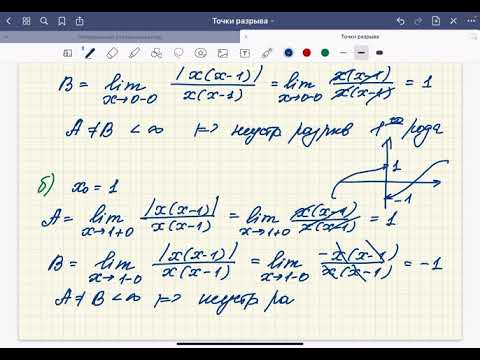 Точки разрыва
Точки разрыва
B = lim x→0-0 |x(x-1)| / x(x-1) = lim x→0-0 x(x-1) / x(x-1) = 1
A ≠ B < ∞ ⟼ неустр разрыв 1го рода
1
-1
б) x₀ = 1
A = lim x→1+0 |x(x-1)| / x(x-1) = lim x→1+0 x(x-1) / x(x-1) = 1
B = lim x→1-0 |x(x-1)| / x(x-1) = lim x→1-0 -x(x-1) / x(x-1) = -1
A ≠ B < ∞ ⟼ неустр ра